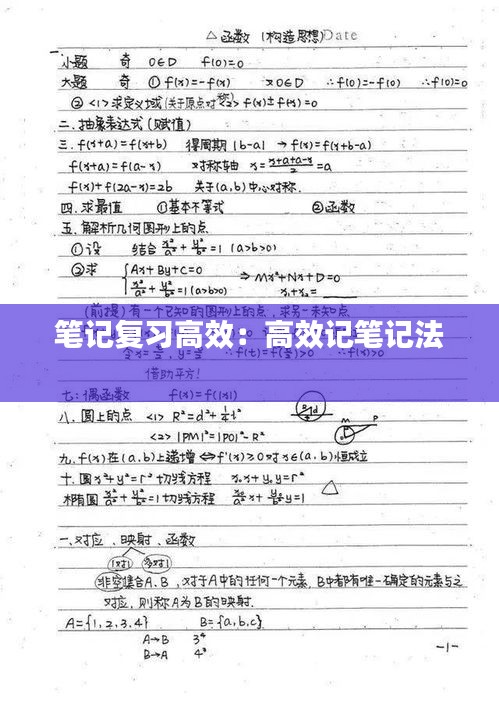 △函数 (构造思想) Date
一.
小题 奇 0∈D f(0)=0
大题 奇 ① f(x)=-f(x) x0∈D ∴f(0)=-f(0) ∴f(0)=0
② <1>求定义域(关于原点对称) <2> f(x)±f(-x)=0
二.抽象表达式(赋值)
三.f(x+a)=f(x+b) 得周期 |b-a| → f(x)=f(x+b-a)
f(x+a)=f(a-x) 对称轴 x=(x+a+a-x)/2=a
f(x)+f(2a-x)=2b 关于(a,b)中心对称.
四.求最值 ①基本不等式 ②函数
五.解析几何图形上的点
①设 结合 x²/a²+y²/b²=1 (a>b>0)
②求 {Ax+By+C=0 ⇒Mx²+Nx+D=0
x²/a²+y²/b²=1(a>b>0) x₁+x₂=
(前提)有一个已知的图形上的点,求另一未知点
笔记复习高效：高效记笔记法
借助平方!
七:偶函数 f(x)=f(|x|)
八.圆上的点 <1> R²=d²+¼l²
d
<2> |PM|²=|PO|²-R² M P
九.f(x)在(a,b)上递增⇔f'(x)≥0对x∈(a,b)恒成立
十.圆x²+y²=r²切线方程 x₀x+y₀y=r²
椭圆 x²/a²+y²/b²=1切线方程 x₀/a²x+y₀/b²y=1 △
一.对应、映射、函数
1对1 多对1
非空集合A.B,对于A中的任何一个元素,B中都有唯一确定的元素与之
对应,则称A为B的映射.
A={1,2,3,4} B={a,b,c}
A→B 3⁴
B→A 4³
-1-